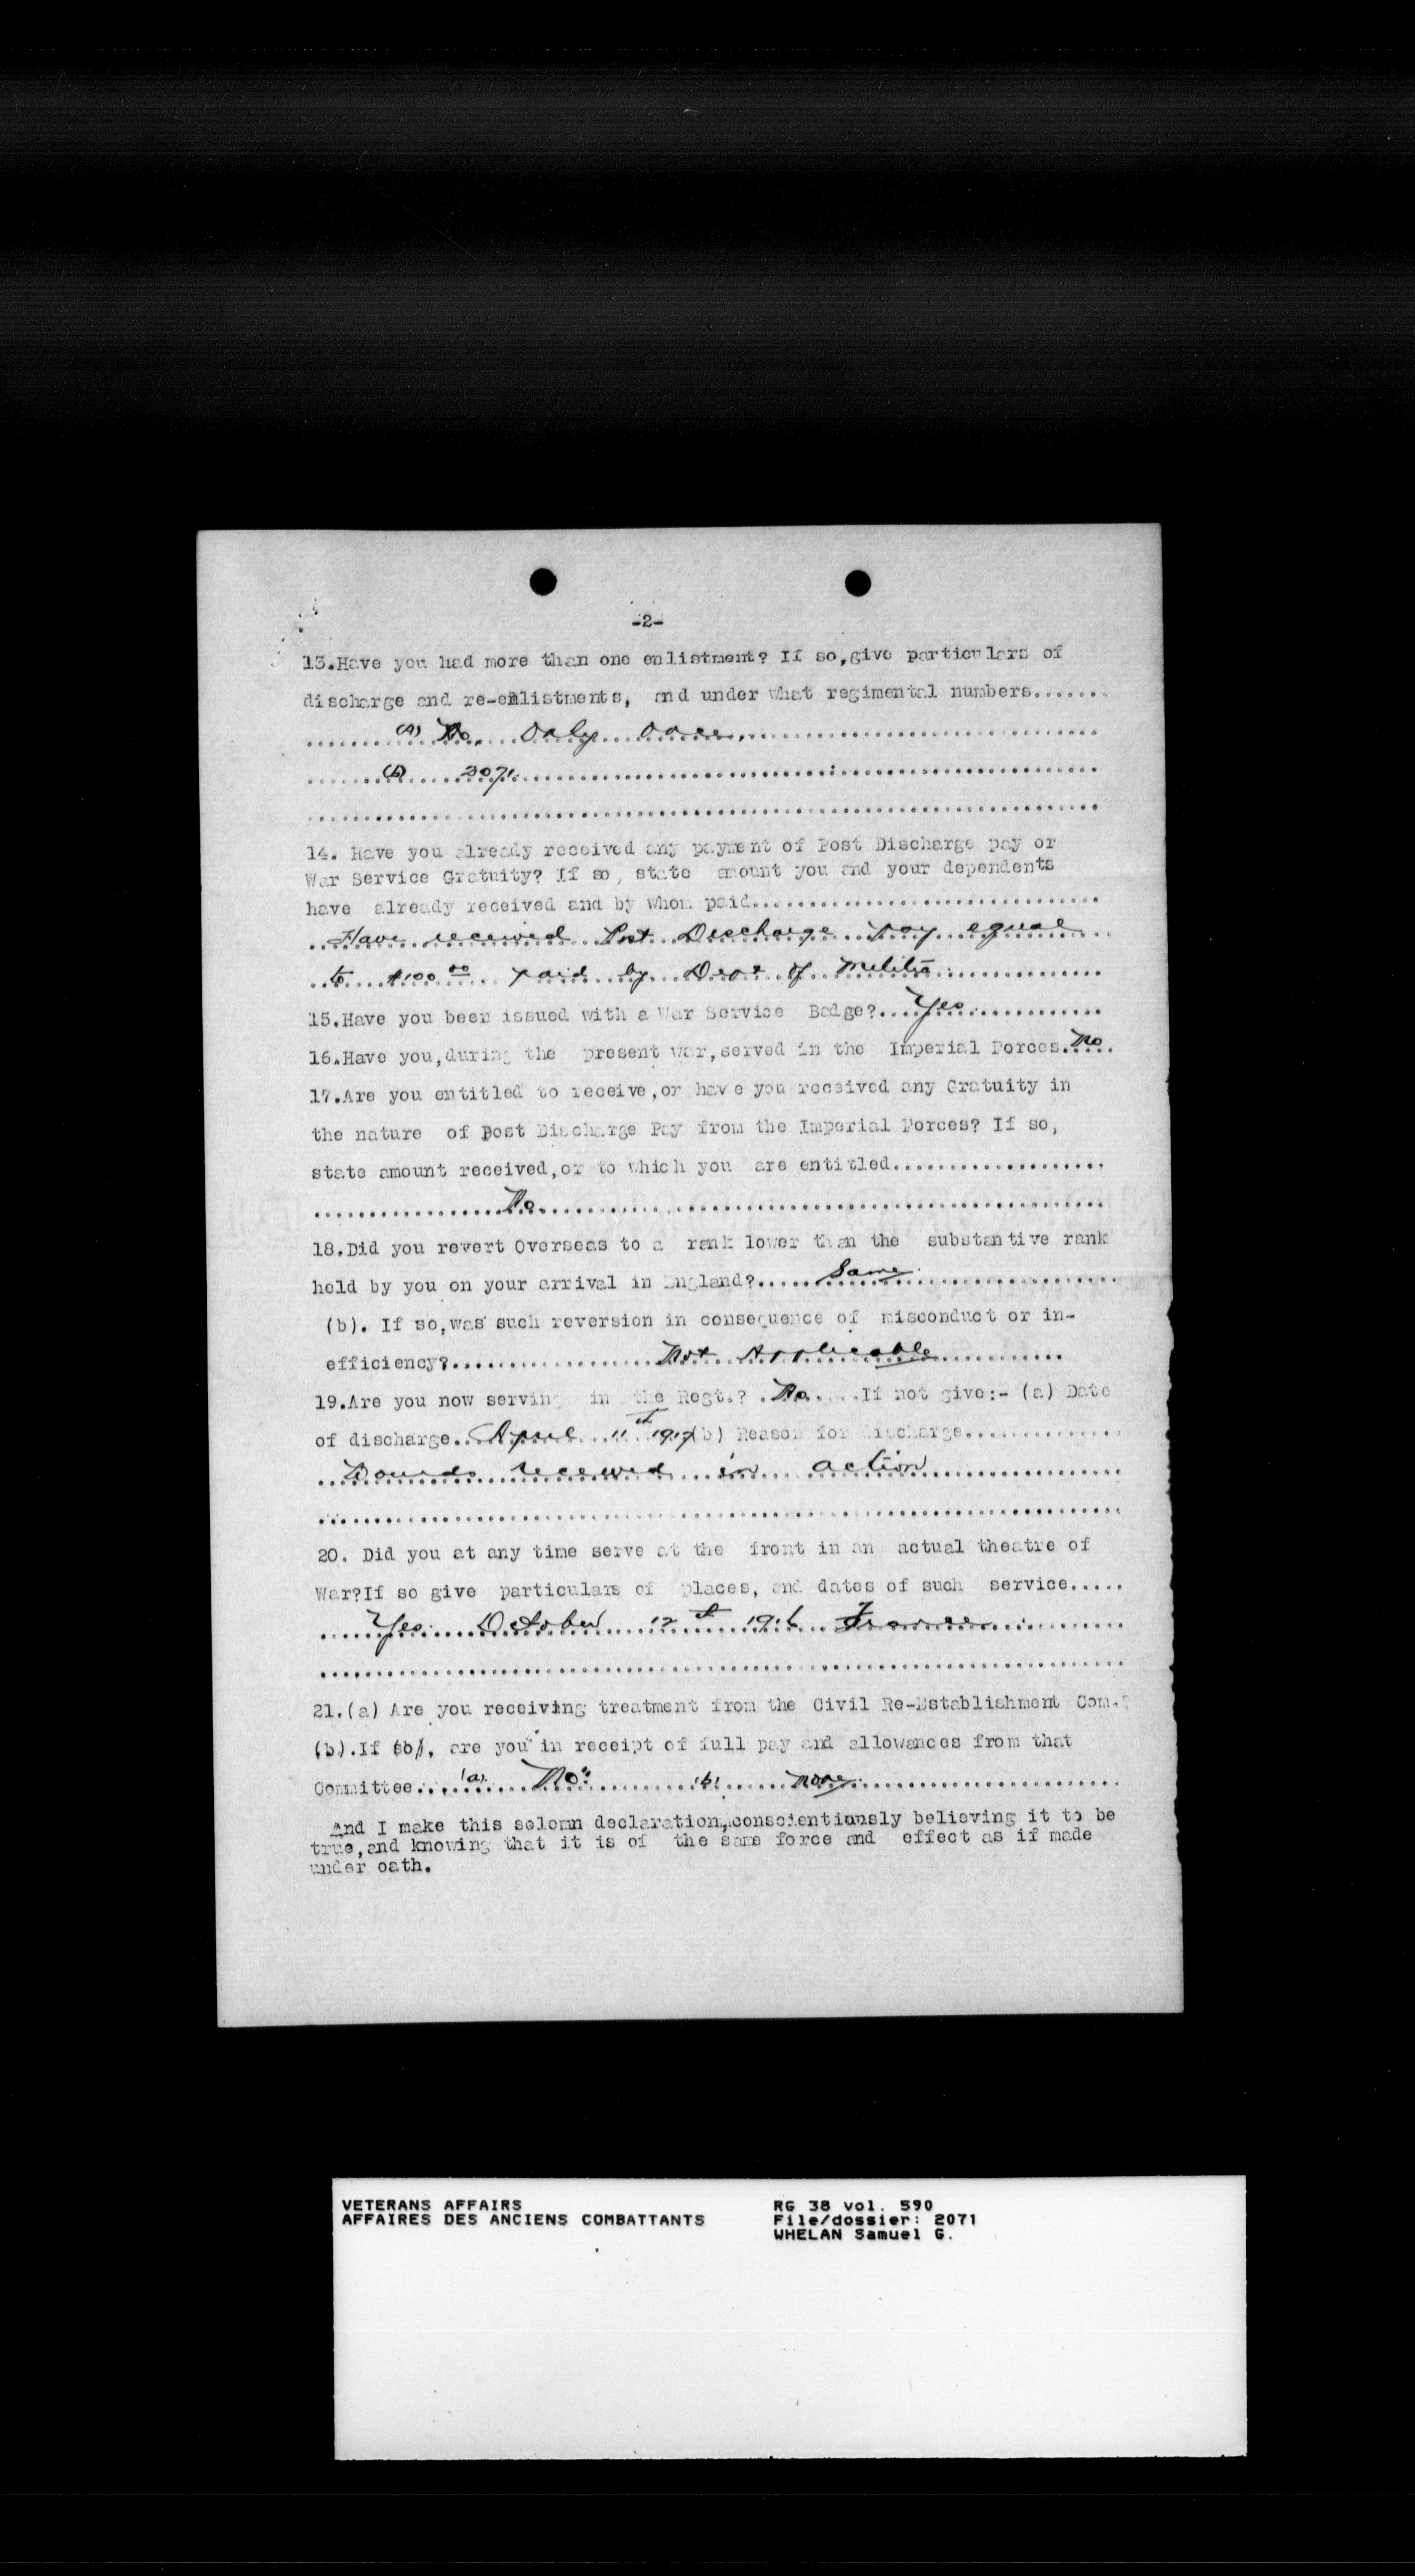 -2-
13.Have you had more than one enlistment? If so,give particulars of
discharge and re-enlistments, and under what regimental numbers.......
(A) No. Only once.
(b) 2071.
14. Have you already received any payment of Post Discharge pay or
War Service Gratuity? If so, state amount you and your dependents
have already received and by whom paid...............................
Have received Post Discharge pay equal
to $100.00 paid by Dept of Militia.
15.Have you been issued with a War Service Badge?....Yes.............
16.Have you,during the present war,served in the Imperial Forces.No..
17.Are you entitled to receive,or have you received any Gratuity in
the nature of Post Discharge Pay from the Imperial Forces? If so,
state amount received,or to which you are entitled...................
No
18.Did you revert Overseas to a rank lower than the substantive rank
held by you on your arrival in England?......Same...................
(b). If so,was such reversion in consequence of misconduct or in-
efficiency?...................Not Applicable............
19.Are you now serving in the Regt.? .No.....If not give:- (a) Date
of discharge..April 11th 1917(b) Reason for discharge..............
Wounds received in action
20. Did you at any time serve at the front in an actual theatre of
War?If so give particulars of places, and dates of such service.....
Yes. October 12th 1916 France
21.(a) Are you receiving treatment from the Civil Re-Establishment Com.?
(b).If so, are you in receipt of full pay and allowances from that
Committee....(a). No. (b) none.
And I make this solemn declaration,conscientiously believing it to be
true,and knowing that it is of the same force and effect as if made
under oath.
VETERANS AFFAIRS
AFFAIRES DES ANCIENS COMBATTANTS
RG 38 vol. 590
File/dossier: 2071
WHELAN Samuel G.